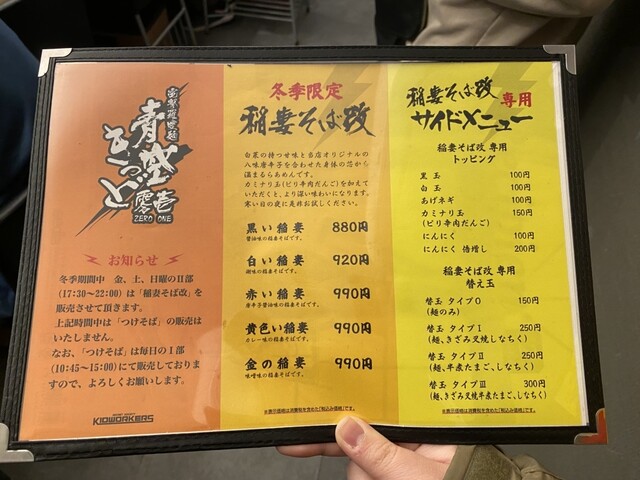 青空
きっど
零壱
ZERO ONE
お知らせ
冬季期間中 金、土、日曜のⅡ部
(17:30〜22:00)は「稲妻そば改」を
販売させて頂きます。
上記時間中は「つけそば」の販売は
いたしません。
なお、「つけそば」は毎日のⅠ部
(10:45〜15:00)にて販売しておりま
すので、よろしくお願いします。
KIDWORKERS
冬季限定
稲妻そば改
白菜の持つせ味と当店オリジナルの
八味唐辛子を合わせた身体の芯から
温まるらぁめんです。
カミナリ玉(ピリ辛肉だんご)を加えて
いただくと、より深い味わいになります。
寒い日の夜に是非お試しください。
黒い稲妻 880円
醤油味の稲妻そばです。
白い稲妻 920円
味の稲妻そばです。
赤い稲妻 990円
唐辛子醤油味の稲妻そばです。
黄色い稲妻 990円
カレー味の稲妻そばです。
金の稲妻 990円
味噌味の稲妻そばです。
※表示価格は消費税を含めた「税込み価格」です。
稲妻そば改 専用
サイドメニュー
稲妻そば改 専用
トッピング
黒玉 100円
白玉 100円
あげネギ 100円
カミナリ玉 150円
(ピリ辛肉だんご)
にんにく 100円
にんにく 倍増し 200円
稲妻そば改 専用
替え玉
替玉 タイプ0 150円
(麺のみ)
替玉 タイプⅠ 250円
(麺、きざみ叉焼しなちく)
替玉 タイプⅡ 250円
(麺、半産たまご、しなちく)
替玉 タイプⅢ 300円
(麺、きざみ叉焼半産たまご、しなちく)
※表示価格は消費税を含めた「税込み価格」です。